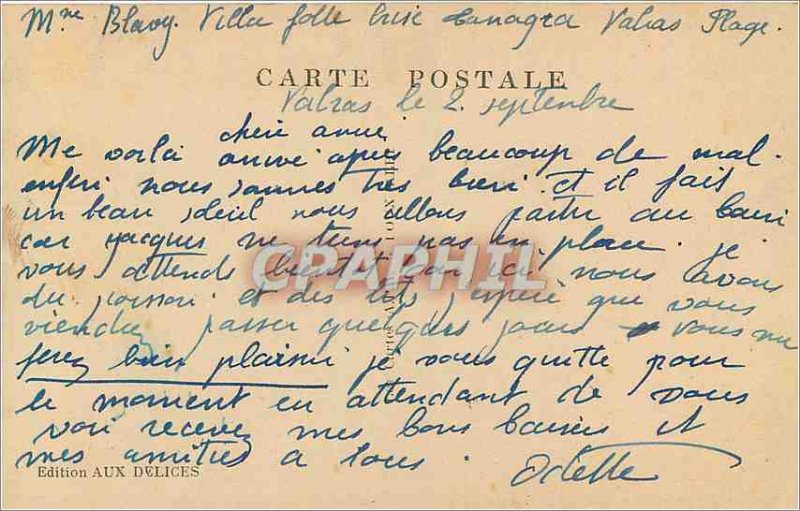 Mme Blavy. Villa folle brise Tanagra Valras Plage.
CARTE POSTALE
Valras le 2. septembre
chere amie
Me voila arrivé apres beaucoup de mal.
enfin nous sommes tres bien. et il fait
un beau soleil nous allons partir au bain
car Jacques ne tiens pas en place. je
vous attends bientot par ici, nous avons
du poisson et des lits j'espere que vous
viendrez passer quelques jours vous me
ferez bien plaisir je vous quitte pour
le moment en attendant de vous
voir recevez mes bons baisers et
mes amitiés a tous.
Odette
Edition AUX DELICES
CPAPHIL